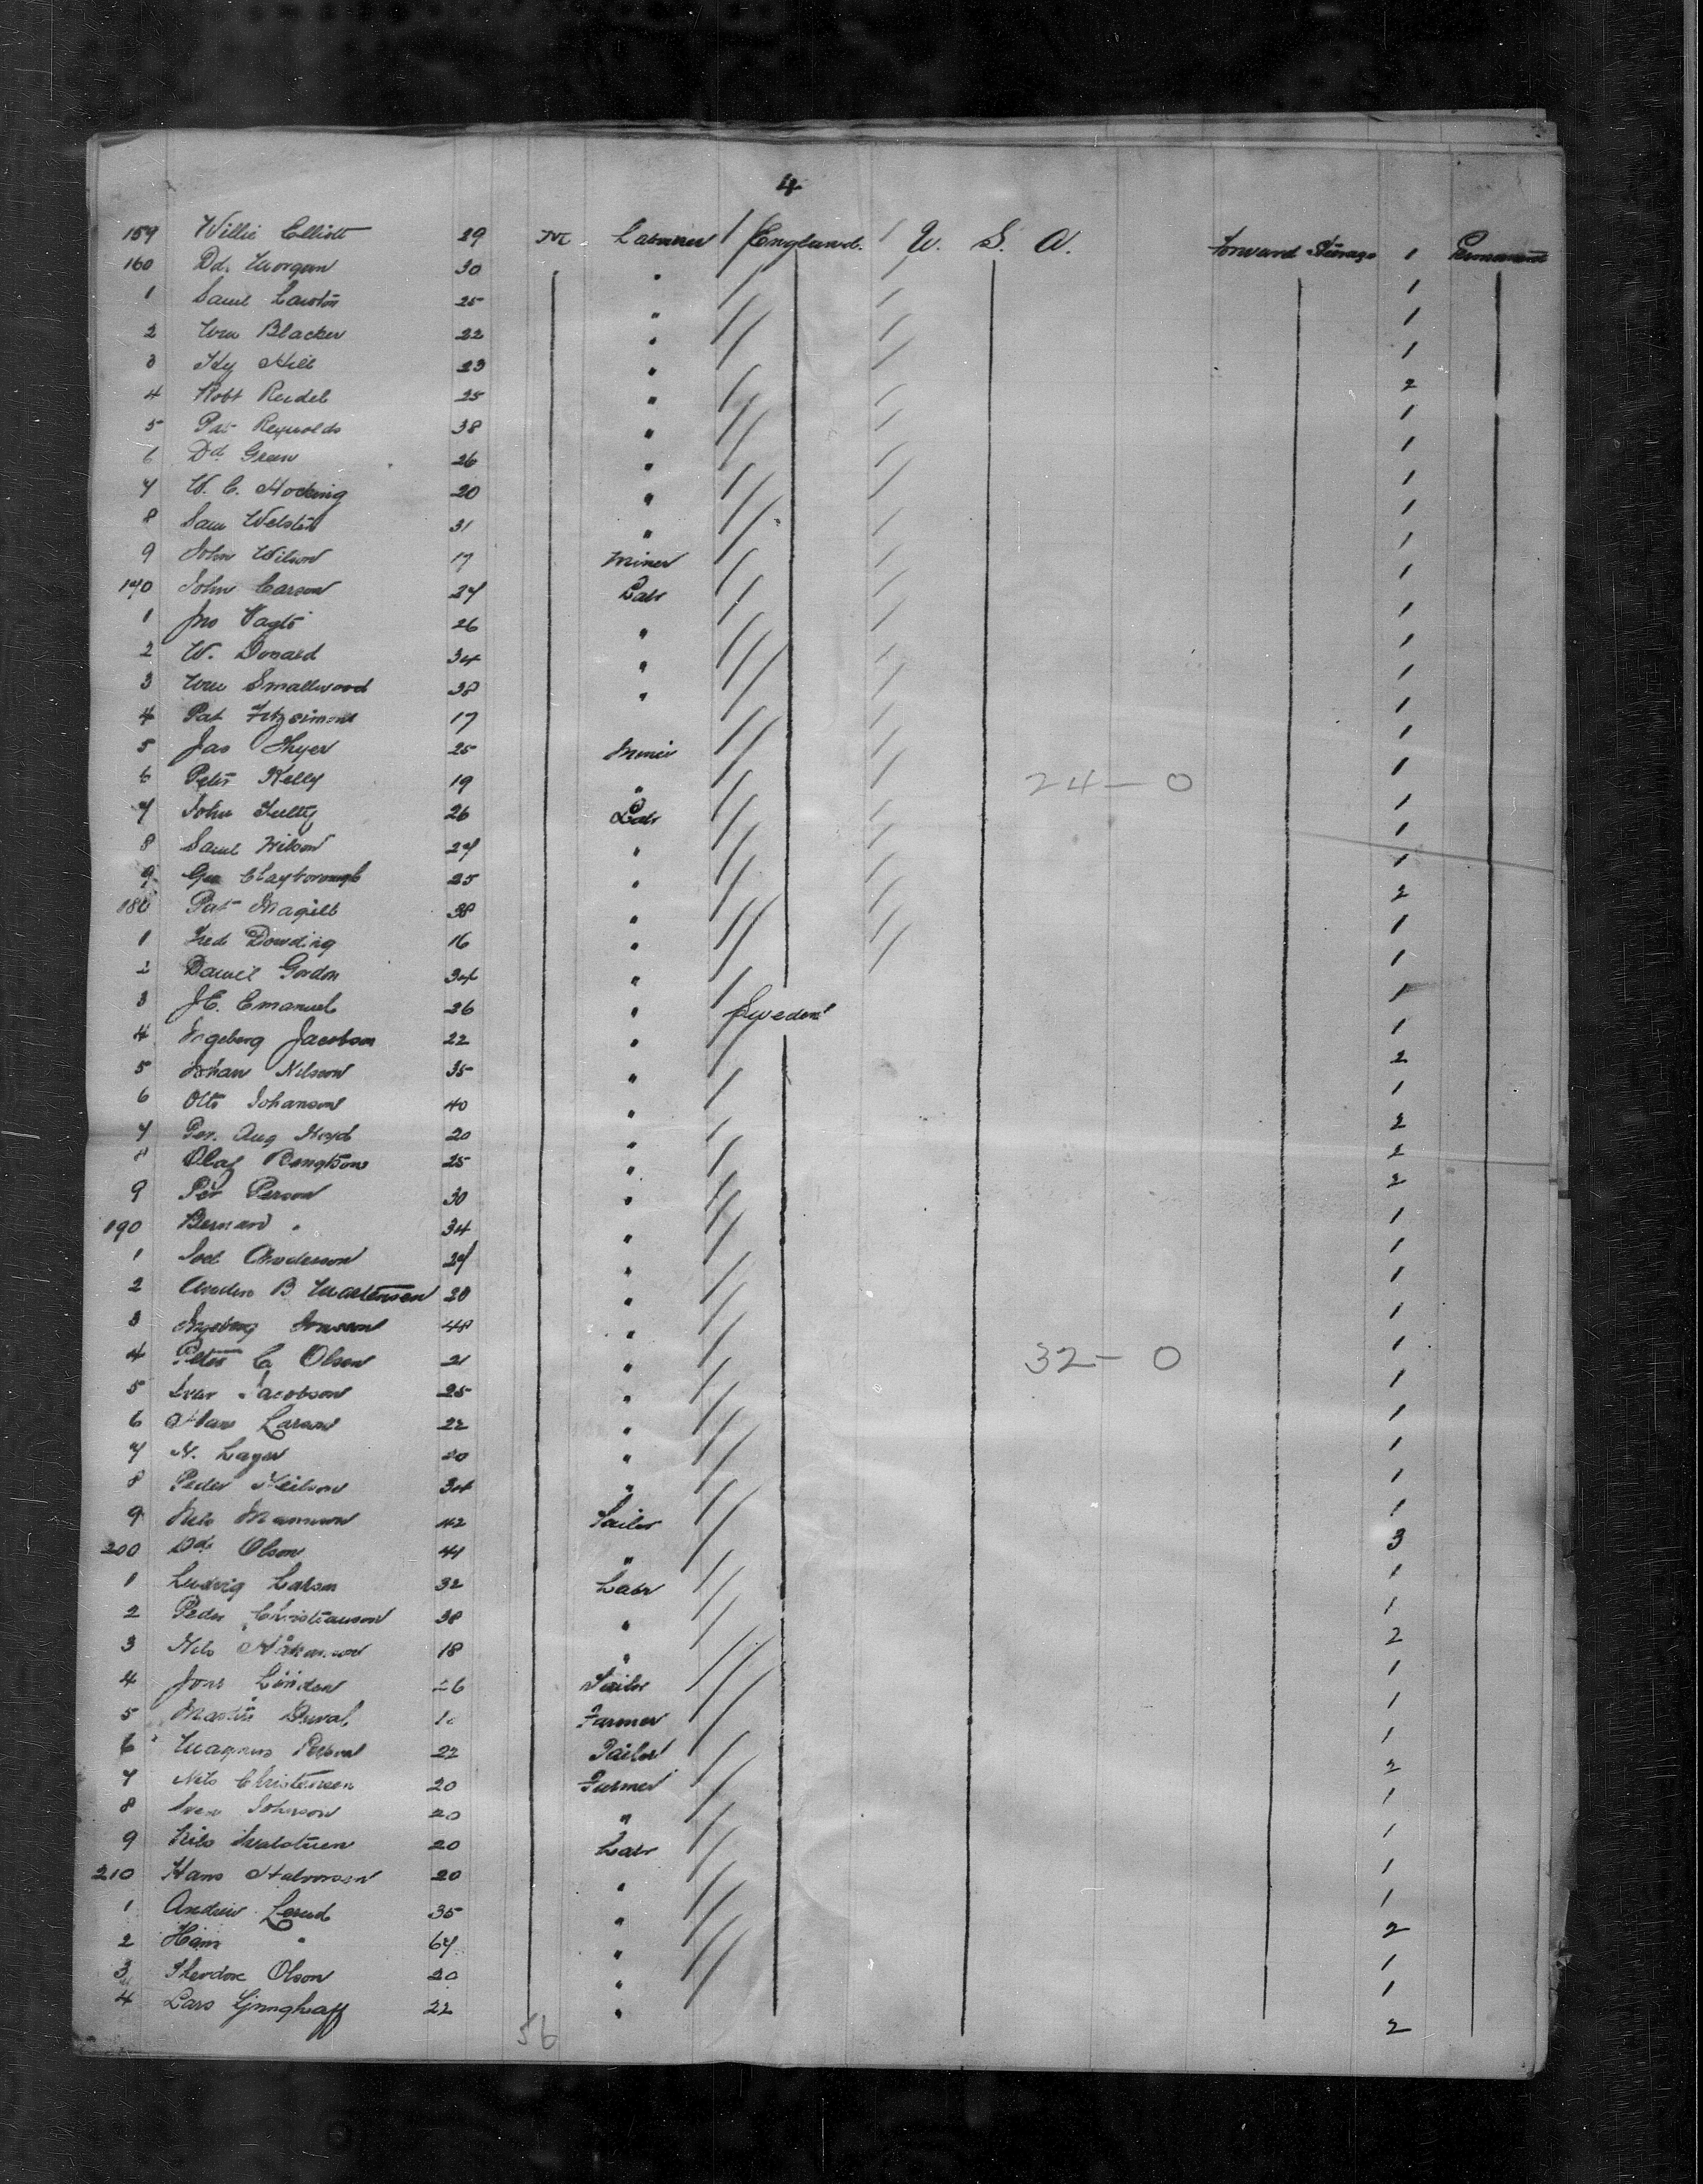 4
159 Willie Elliott 29 M Labourer England U. S. A. Forward Steerage 1 Permanent
160 Dd. Morgan 30 " 1
1 Saml Lawton 25 " 1
2 Wm Blacker 22 " 1
3 Hy Hill 23 " 2
4 Robt Reidel 25 " 1
5 Pat Reynolds 38 " 1
6 Dd Green 26 " 1
7 W. C. Hocking 20 " 1
8 Sam 31 " 1
9 John Wilson 17 Miner 1
170 John Carson 27 Labr 1
1 Jno 26 " 1
2 W. Donald 34 " 1
3 Wm Smallwood 38 " 1
4 Pat Fitzsimons 17 1
5 Jas 25 Miner 1
6 Peter Kelly 19 " 1
7 John 26 Labr 1
8 Saml Wilson 27 " 1
9 Geo Clayborough 25 " 2
180 Pat Magill 38 " 1
1 Fred Dowding 16 " 1
2 Daniel Gordon 34 " 1
24 - 0
3 J E. Emanuel 26 " Sweden 1
4 Ingeborg Jacobson 22 " 2
5 Johan Nilsson 35 " 1
6 Otto Johanson 40 " 2
7 Per. Aug 20 " 2
8 Olaf Bengtson 25 " 2
9 Per Person 30 " 1
190 Bernard " 34 " 1
1 Joel Anderson 27 " 1
2 B Martensen 28 " 1
3 Ingeborg 48 " 1
4 Peter C. Olsen 21 " 1
32 - 0
5 Ivar Jacobson 25 " 1
6 Hans Larson 22 " 1
7 N. Lager 20 " 1
8 Peder Neilson 34 " 1
9 Nils Monsson 42 Sailor 3
200 Dd Olson 44 " 1
1 Ludvig Carlson 32 Labr 1
2 Peder Christianson 38 " 2
3 Nils 18 " 1
4 Jons Linden 26 Sailor 1
5 Martin Farmer 1
6 Magnus 22 Tailor 2
7 Nils Christensen 20 Farmer 1
8 Sven Johnson 20 " 1
9 Nils 20 Labr 1
210 Hans Halvorsen 20 " 1
1 Andrew Lound 35 " 2
2 Hans " 67 " 1
3 Theodore Olson 20 " 1
4 Lars 22 " 2
56